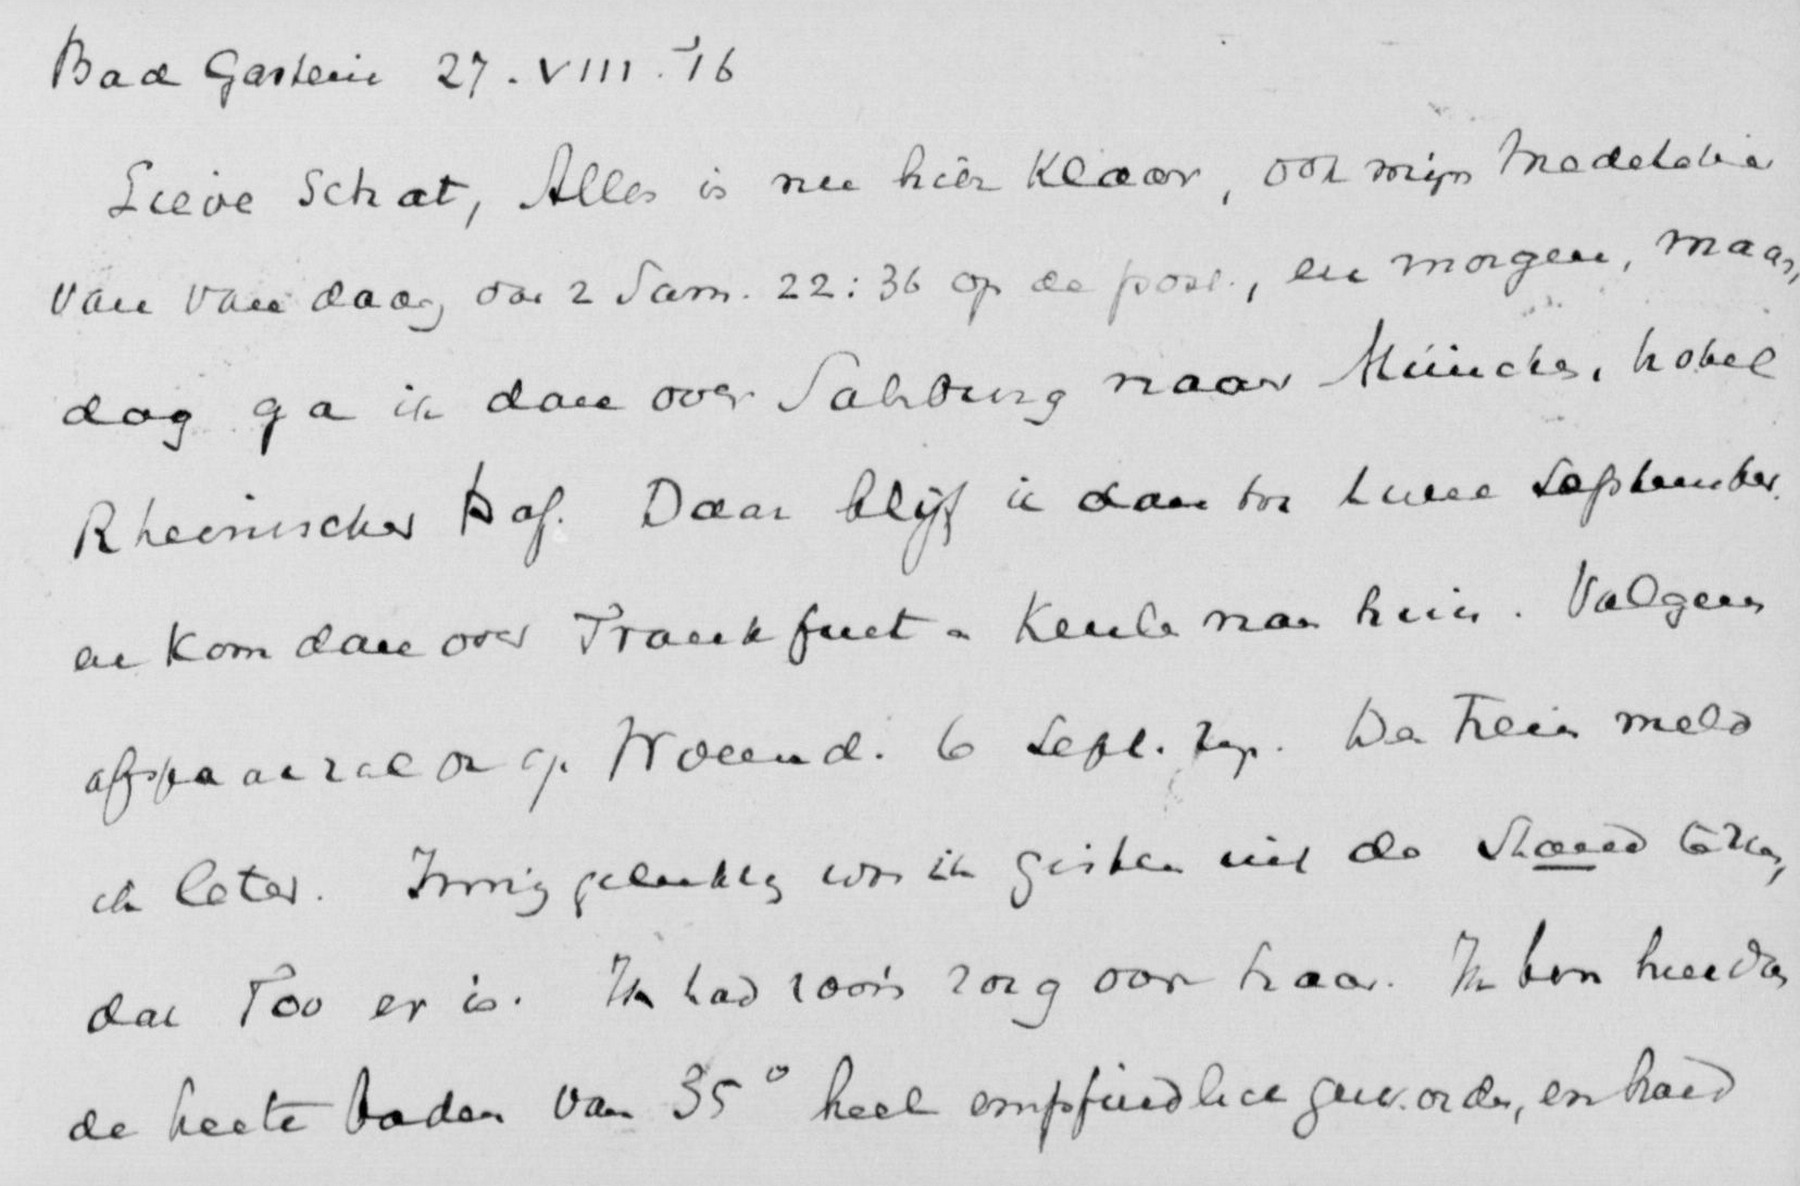 Bad Gastein 27.VIII.'16
Lieve Schat, Alles is nu hier klaar, ook mijn
van van daag op de post., en morgen, maan,
dag ga ik dan over Salzburg naar München, hotel
Rheinischer Hof. Daar blijf ik dan tot twee September.
en kom dan over Frankfurt - Keulen naar huis. Volgens
zal op Woensd. 6 Sept. zijn. De trein meld
ik later. Innig gelukkig was ik gisteren uit de te zien,
dat Too er is. Ik had zoo'n zorg voor haar. Ik ben hier door
de heete baden van 35° heel empfindlich geworden, en